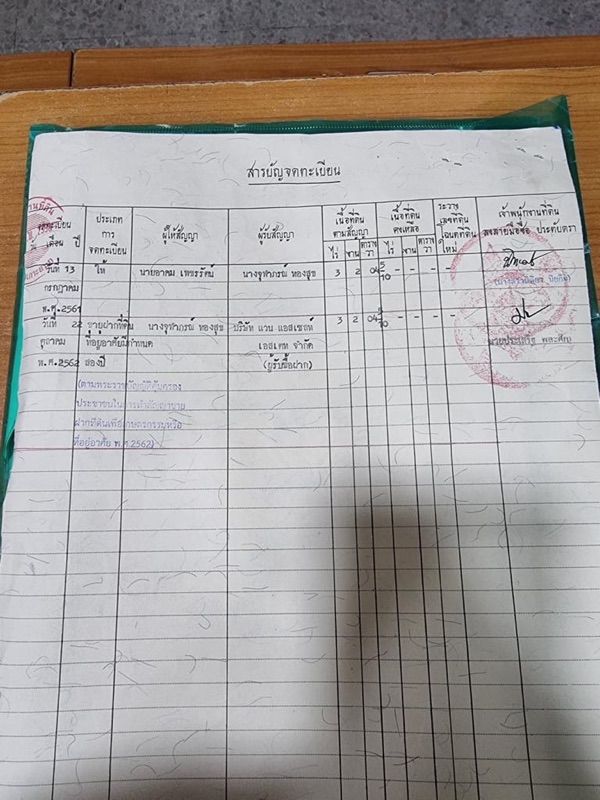 สารบัญจดทะเบียน
จดทะเบียน
เดือน ปี
ประเภท
การ
จดทะเบียน
ผู้ให้สัญญา
ผู้รับสัญญา
เนื้อที่ดิน
ตามสัญญา
ไร่ งาน ตาราง
วา
เนื้อที่ดิน
คงเหลือ
ไร่ งาน ตาราง
วา
ระวาง
เลขที่ดิน
โฉนดที่ดิน
ใหม่
เจ้าพนักงานที่ดิน
ลงลายมือชื่อ ประทับตรา
วันที่ 13 ให้ นายอาคม เพชรรัตน์ นางจุฑาภรณ์ ทองสุข 3 2 - - - -
กรกฎาคม
พ.ศ.2561
วันที่ 22 ขายฝากที่ดิน นางจุฑาภรณ์ ทองสุข บริษัท แวน แอสเซทส์ 3 2 - - - -
ตุลาคม ที่อยู่อาศัยมีกำหนด เอสเตท จำกัด
พ.ศ.2562 สองปี (ผู้รับซื้อฝาก)
(ตามพระราชบัญญัติคุ้มครอง
ประชาชนในการทำสัญญาขาย
ฝากที่ดินเพื่อเกษตรกรรมหรือ
ที่อยู่อาศัย พ.ศ.2562)